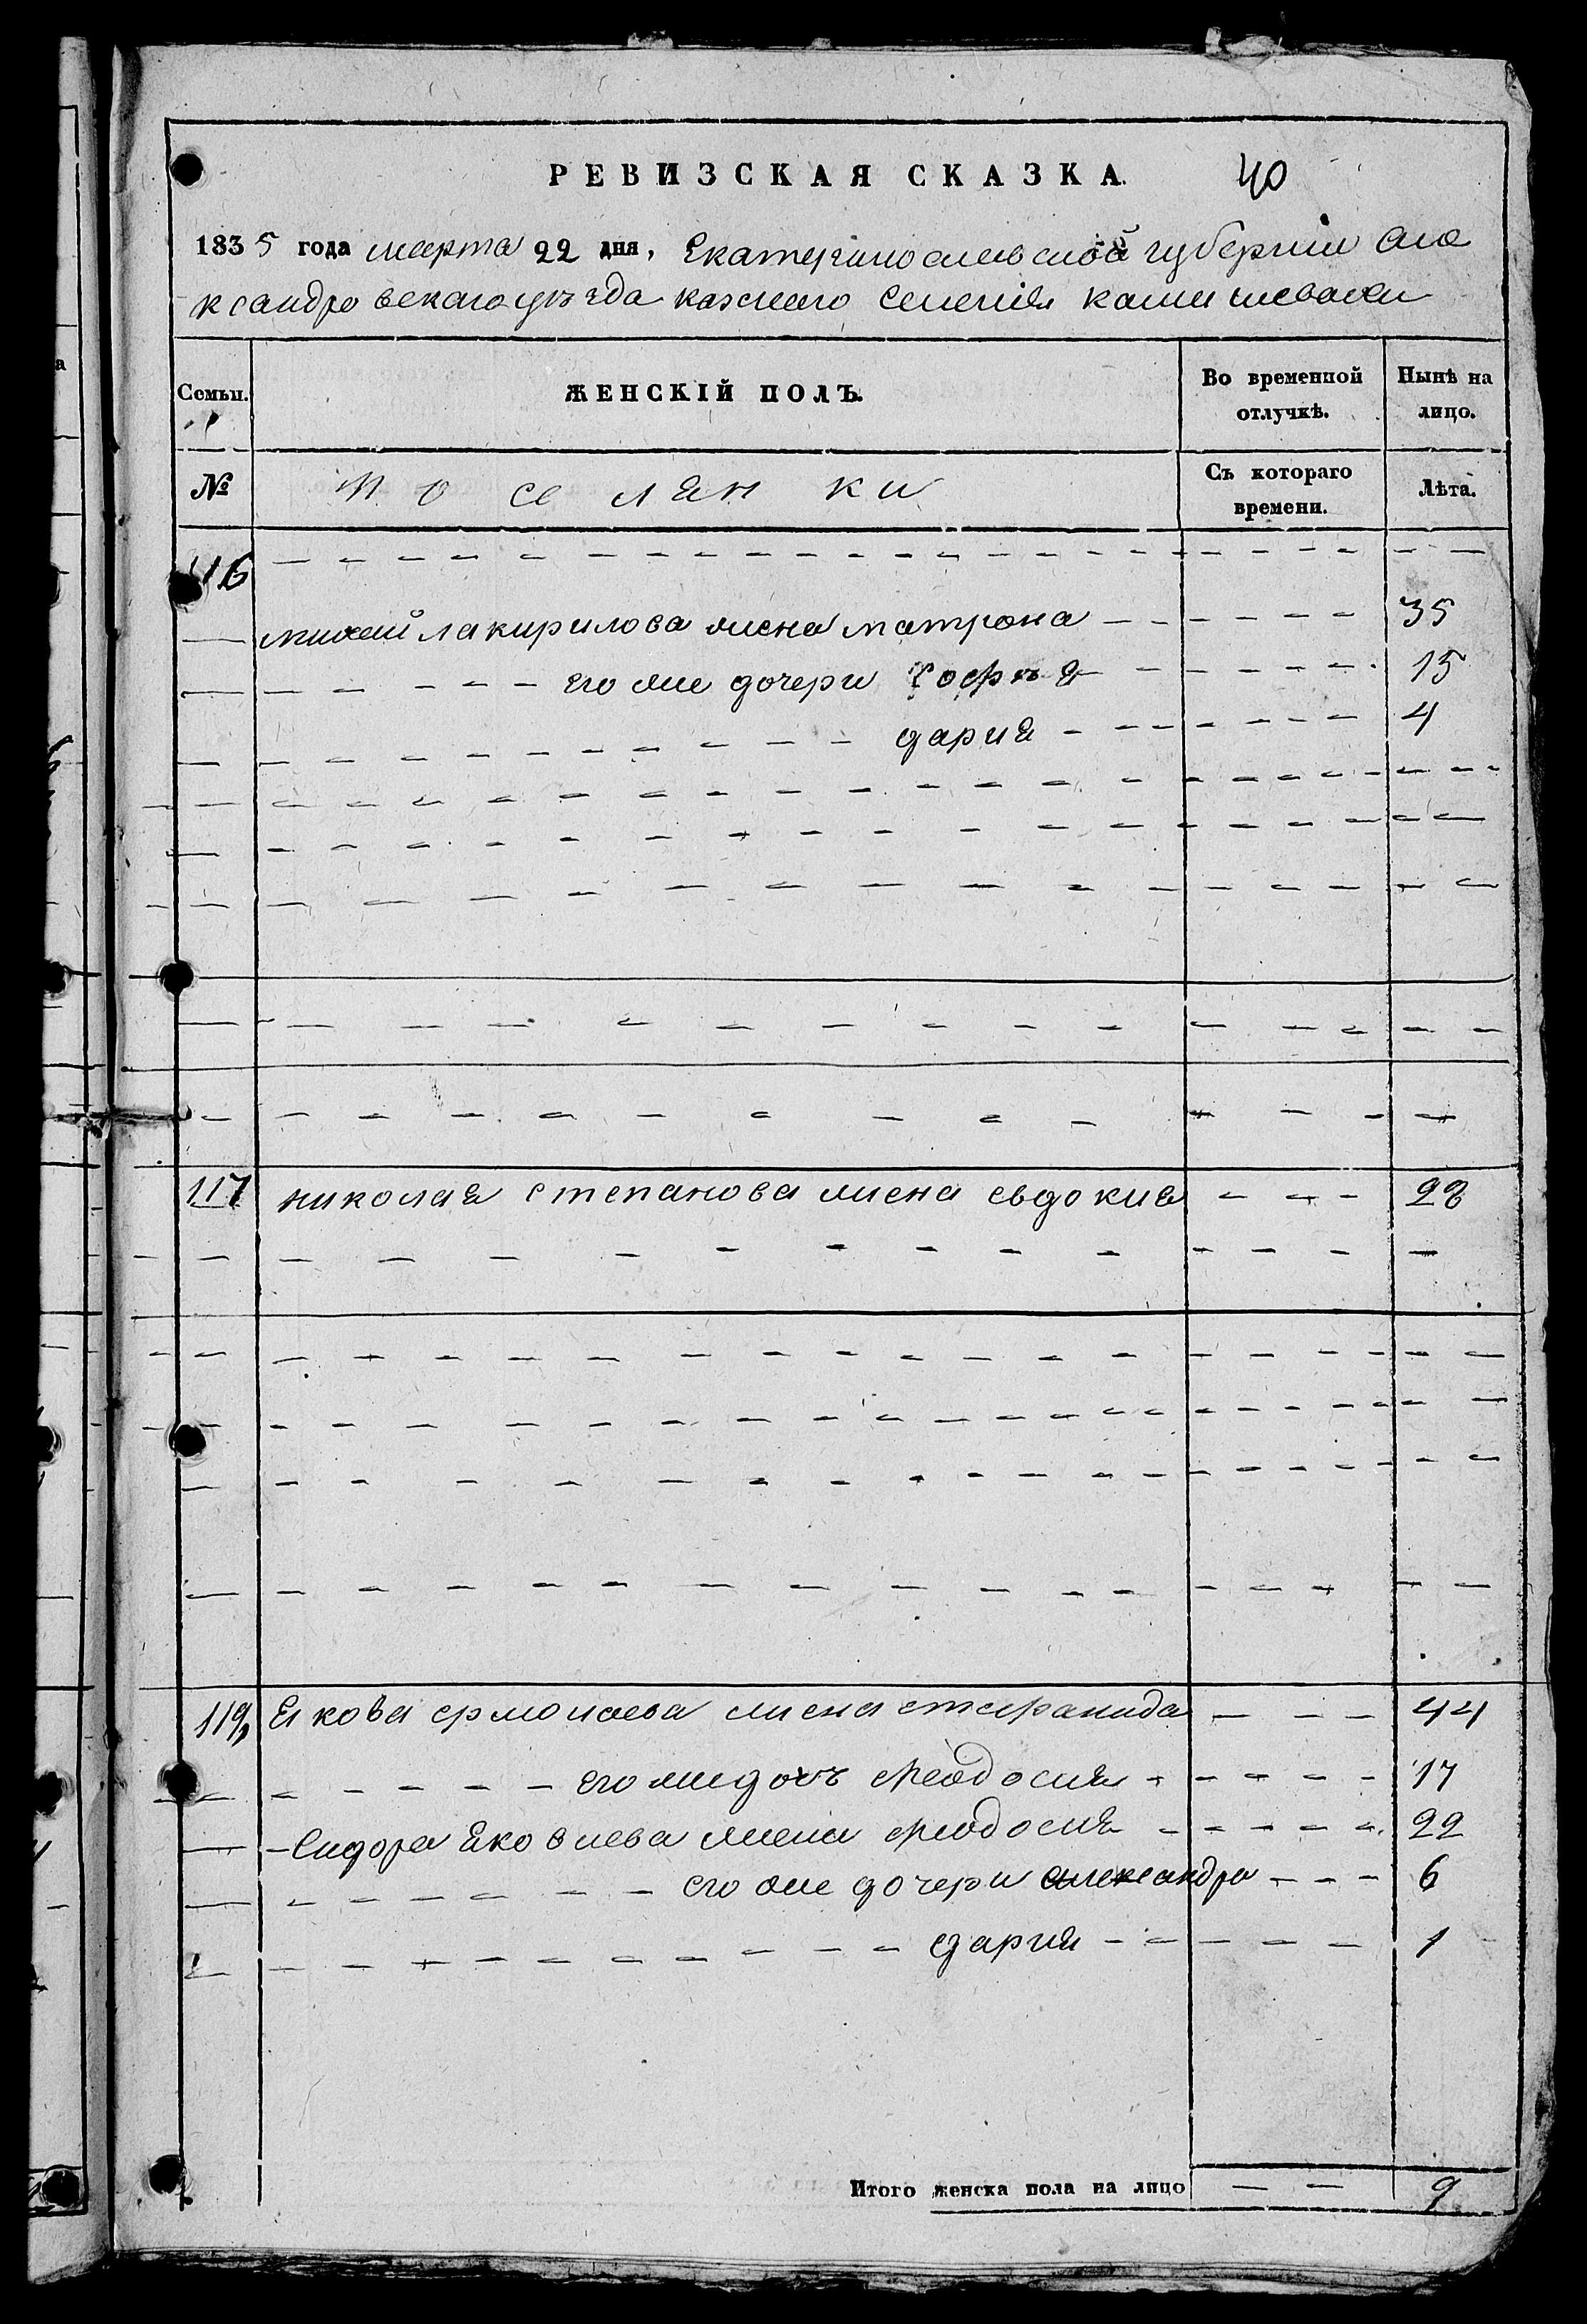 РЕВИЗСКАЯ СКАЗКА. 40
1835 года марта 22 дня, Екатеринославской губернии але
ксандровскаго уѣзда казенаго селения камышевахи
Семьи. ЖЕНСКІЙ ПОЛЪ. Во временной отлучкѣ. Нынѣ на лицо.
№ поселянки Съ котораго времени. Лѣта.
116
михайла кирилова жена матрона 35
его же дочери Софья 15
дария 4
117 николая степанова жена евдокия 28
119 Якова ермолаева жена 44
его же дочь феодосия 17
Сидора Яковлева жена феодосия 22
его же дочери александра 6
дария 1
Итого женска пола на лицо 9